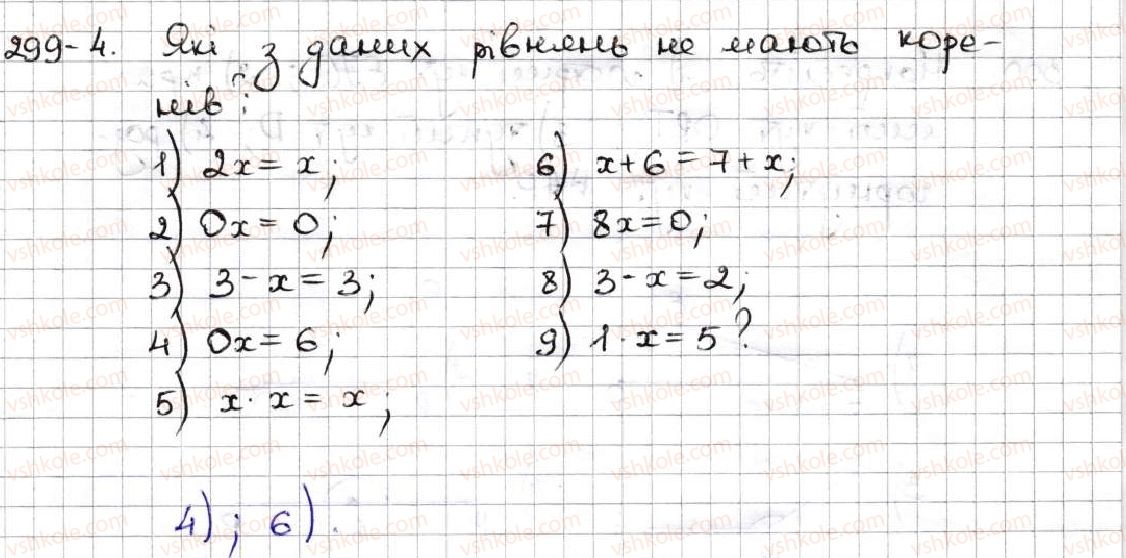 299-4. Які з даних рівнянь не мають коре-
нів:
1) 2x = x;
2) 0x = 0;
3) 3 - x = 3;
4) 0x = 6;
5) x · x = x;
6) x + 6 = 7 + x;
7) 8x = 0;
8) 3 - x = 2;
9) 1 · x = 5?
4); 6).